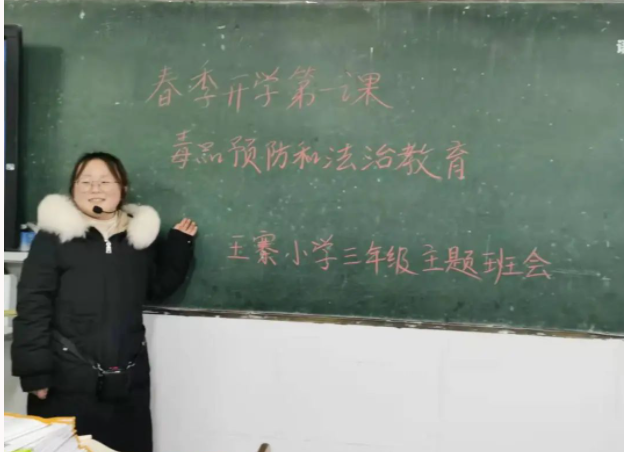 春季开学第一课
毒品预防和法治教育
王寨小学三年级主题班会